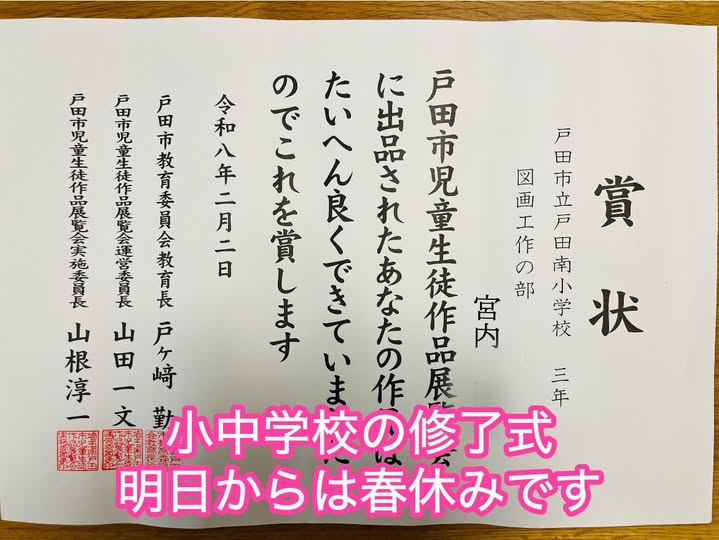 賞状
戸田市立戸田南小学校 三年
図画工作の部
宮内
戸田市児童生徒作品展 会
に出品されたあなたの作 は
たいへん良くできていま た
のでこれを賞します
令和八年二月二日
戸田市教育委員会教育長 戸ヶ﨑 勤
戸田市児童生徒作品展覧会運営委員長 山田一文
戸田市児童生徒作品展覧会実施委員長 山根淳一
小中学校の修了式
明日からは春休みです